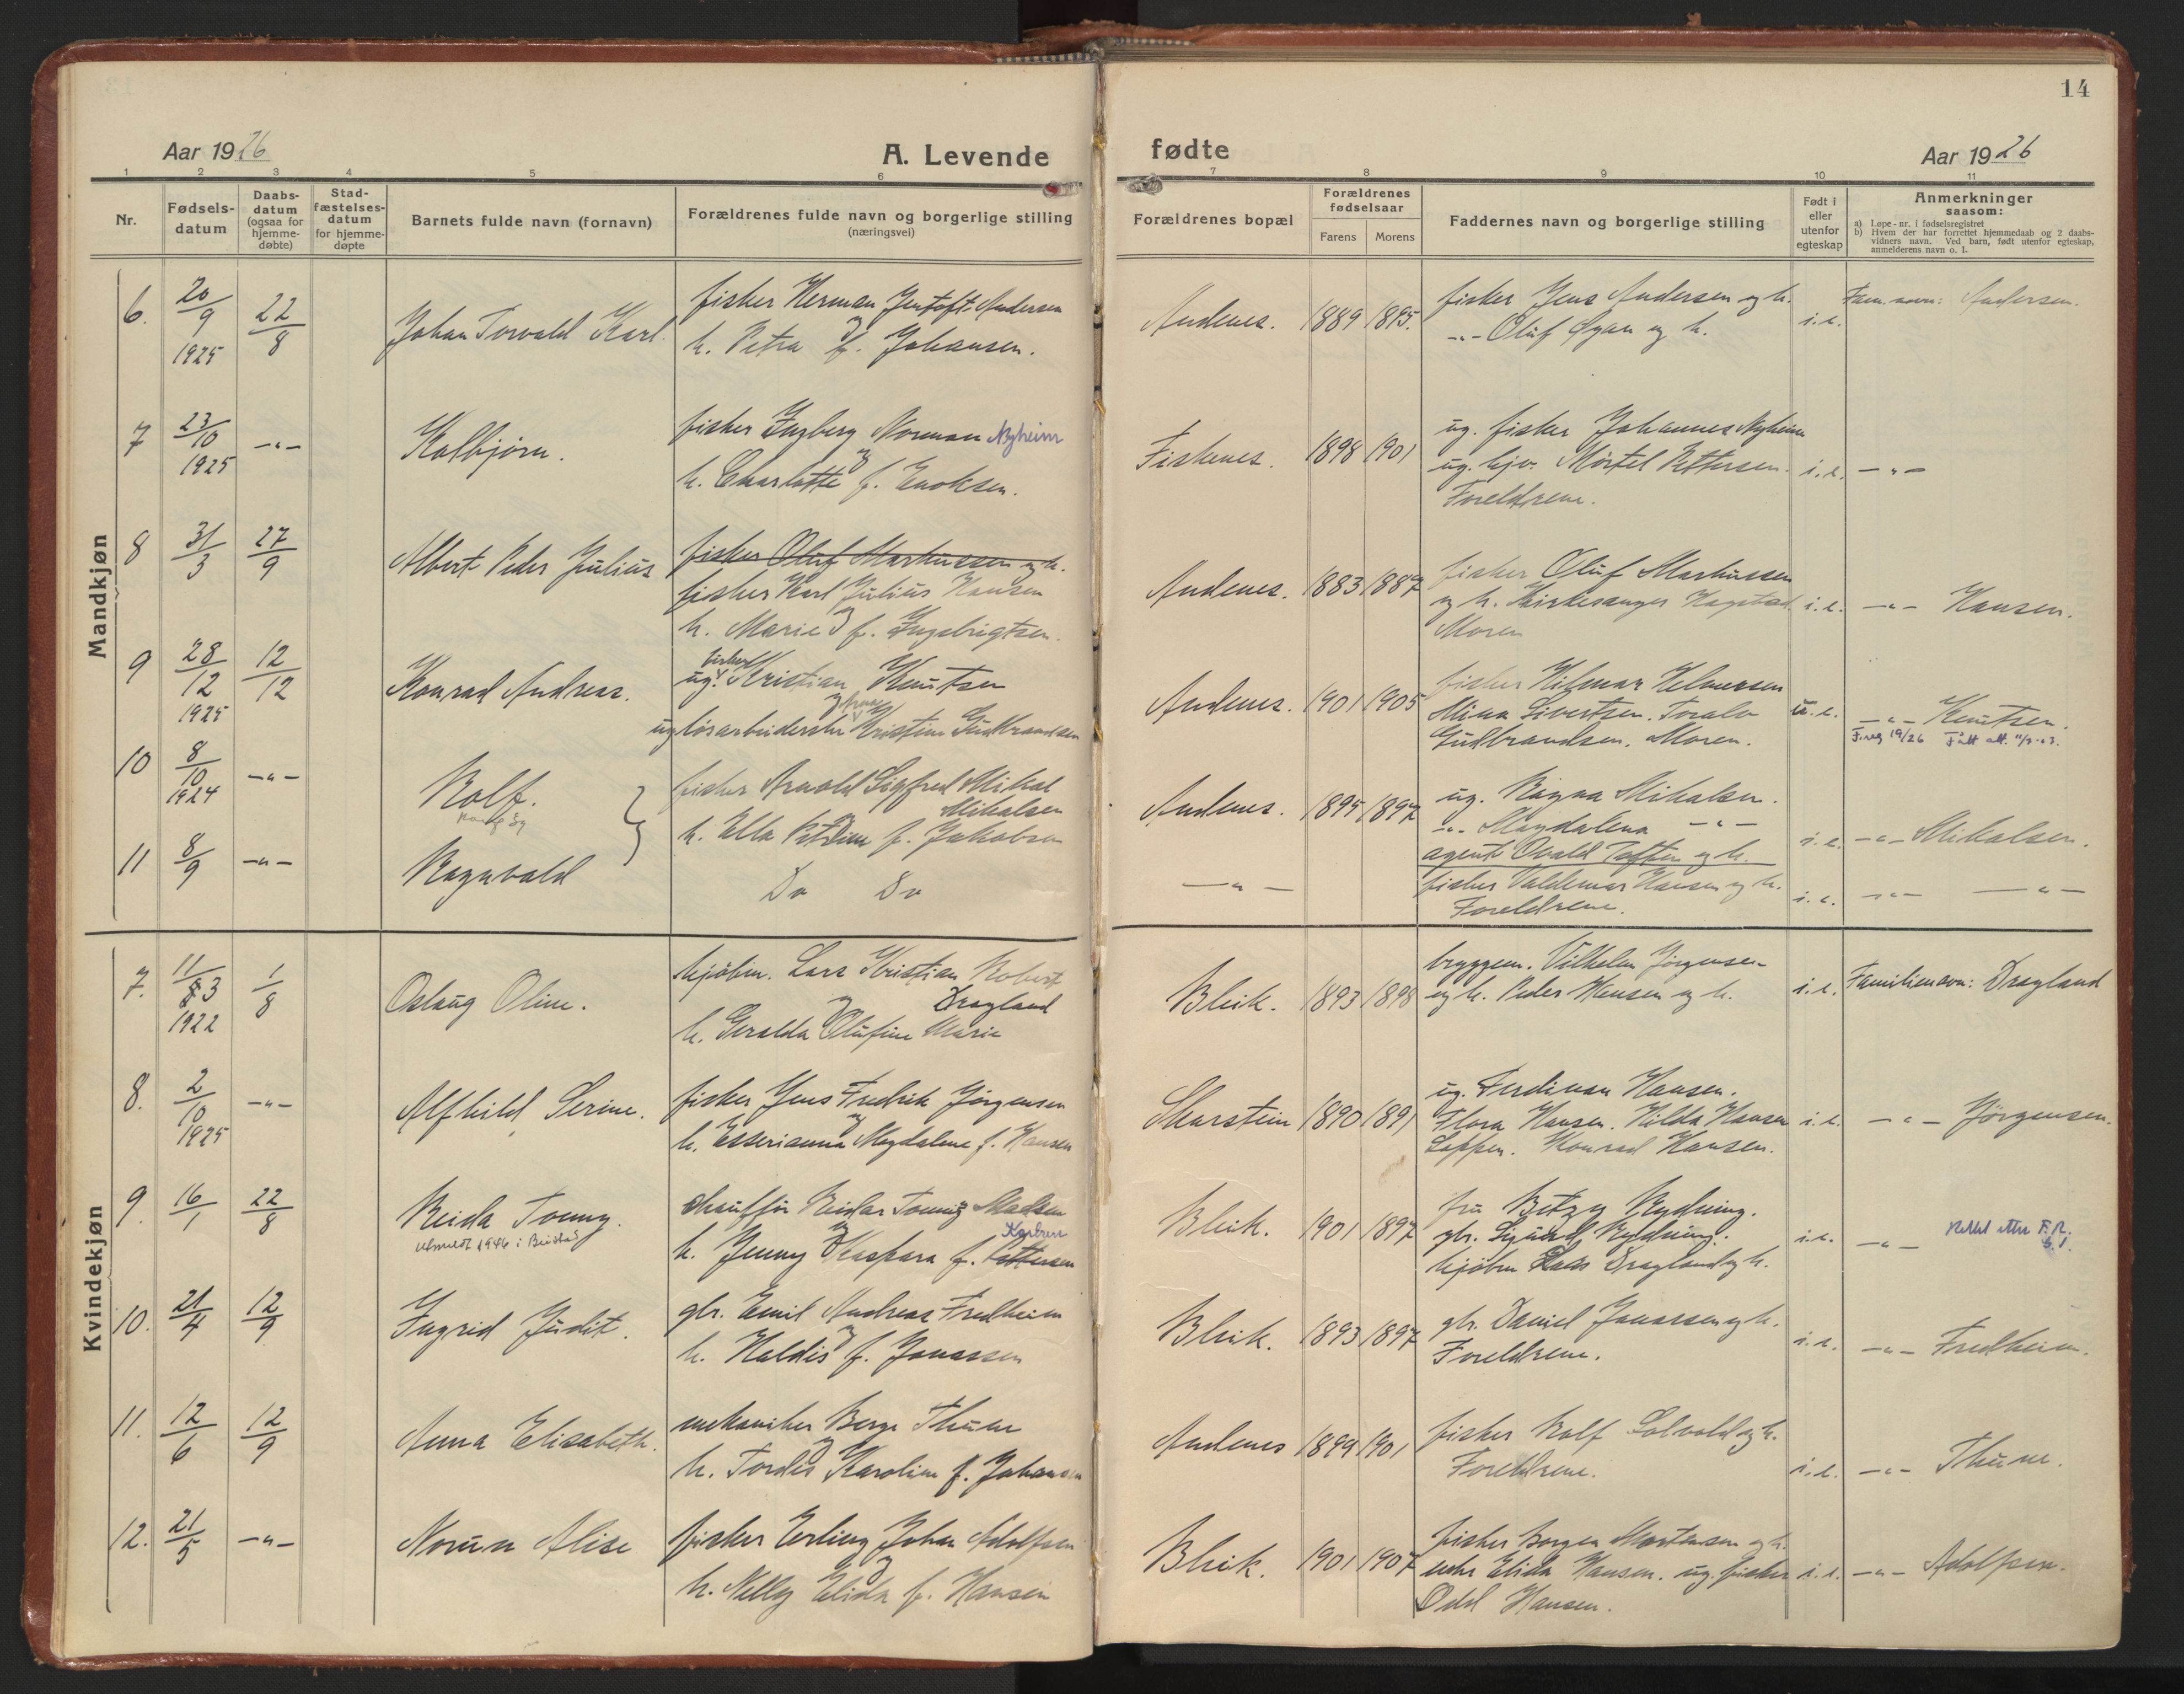 14
Aar 1926
A. Levende
fødte
Aar 1926
1 2 3 4 5 6 7 8 9 10 11
Nr.
Fødsels-
datum
Daabs-
datum
(ogsaa for
hjemme-
døbte)
Stad-
fæstelses-
datum
for hjemme-
døpte
Barnets fulde navn (fornavn)
Forældrenes fulde navn og borgerlige stilling
(næringsvei)
Forældrenes bopæl
Forældrenes
fødselsaar
Farens Morens
Faddernes navn og borgerlige stilling
Født i
eller
utenfor
egteskap
Anmerkninger
saasom:
a) Løpe-nr. i fødselsregistret
b) Hvem der har forrettet hjemmedaab og 2 daabs-
vidners navn. Ved barn, født utenfor egteskap,
anmelderens navn o. l.
Mandkjøn
6. 20/9 1925 22/8 Johan Torvald Karl.
fisker Herman Jentoft Andersen
og
h. Petra f. Johansen.
Andenes. 1889 1895.
fisker Jens Andersen og h.
-"- Oluf Sgan og h.
i.e. Fam.navn: Andersen.
7 23/10 1925 -"- Kolbjørn.
fisker Ingberg Norman Nyheim
og
h. Charlotte f. Enoksen.
Fiskenes. 1898 1901
ug. fisker Johannes Nyheim
ug. hjv. Mörtel Pettersen.
Foreldrene.
i.e. -"-
8 31/3 27/9 Albert Peder Julius
fisker Oluf Markussen og h.
fisker Karl Julius Hansen
og
h. Marie f. Ingebrigtsen.
Andenes. 1883 1887
fisker Oluf Markussen
og h. Kirkesanger Hogstad
Moren
i.e. -"- Hansen.
9 28/12 1925 12/12 Konrad Andreas.
fisker
ug. Kristian Knutsen
og
ug løsarbeiderske Kristine Gudbrandsen
Andenes. 1901 1905
fisker Hilmar Helmersen
Mina Sivertsen. Toralv
Gudbrandsen. Moren.
u.e. -"- Knutsen.
F.reg 19/26 Født att.
10 8/10 1924 -"- Rolf.
fisker Arnold Sigfred Mikal
Mikalsen
og
h. Ella Petrine f. Jakobsen
Andenes. 1895 1897
ug. Ragna Mikalsen.
-"- Magdalena -"-
agent Ovald Toften og h.
i.e. -"- Mikalsen.
11 8/9 -"- Ragnvald
Do Do
-"-
fisker Valdemar Hansen og h.
Foreldrene.
i.e. -"- -"-
Kvindekjøn
7. 11/3 1922 1/8 Oslaug Oline.
kjøbm. Lars Kristian Robert
Dragland
og
h. Geralda Olufine Marie
Bleik. 1893 1898
bryggem. Vilhelm Jørgensen
og h. Peder Hansen og h.
i.e. Familienavn: Dragland
8. 2/10 1925 -"- Alfhild Serine.
fisker Jens Fredrik Jørgensen
og
h. Esserianna Magdalene f. Hansen
Skarstein 1890 1891
ug. Ferdinan Hansen.
Flora Hansen. Hilda Hansen
Konrad Hansen.
i.e. -"- Jörgensen.
9. 16/1 22/8 Reida Tonny.
utmeldt 1946 i Beistad
chauffør Reidar Tonnig Madsen
og
Karlsen
h. Jenny Kaspara f. Pettersen
Bleik. 1901 1897
fru Betzy Nydning.
gbr. Sigurd Nydning.
kjøbm Lars Dragland og h.
i.e. -"- Rettet etter F.R.
10. 21/4 12/9 Ingrid Judit.
gbr. Emil Andreas Fredheim
og
h. Haldis f. Jonassen
Bleik. 1893 1897
gbr. Daniel Jonassen og h.
Foreldrene.
i.e. -"- Fredheim.
11. 12/6 12/9 Anna Elisabeth.
mekaniker Berge Thune
og
h. Tordis Karoline f. Johansen
Andenes 1899 1901
fisker Rolf Solvold og h.
Foreldrene.
i.e. -"- Thune.
12. 21/5 -"- Norunn Alise
fisker Erling Johan Adolfsen
og
h. Nelly Elida f. Hansen
Bleik. 1901 1907
fisker Borgen Mortensen og h.
enke Elida Hansen. ug. fisker
Odd Hansen.
i.e. -"- Adolfsen.